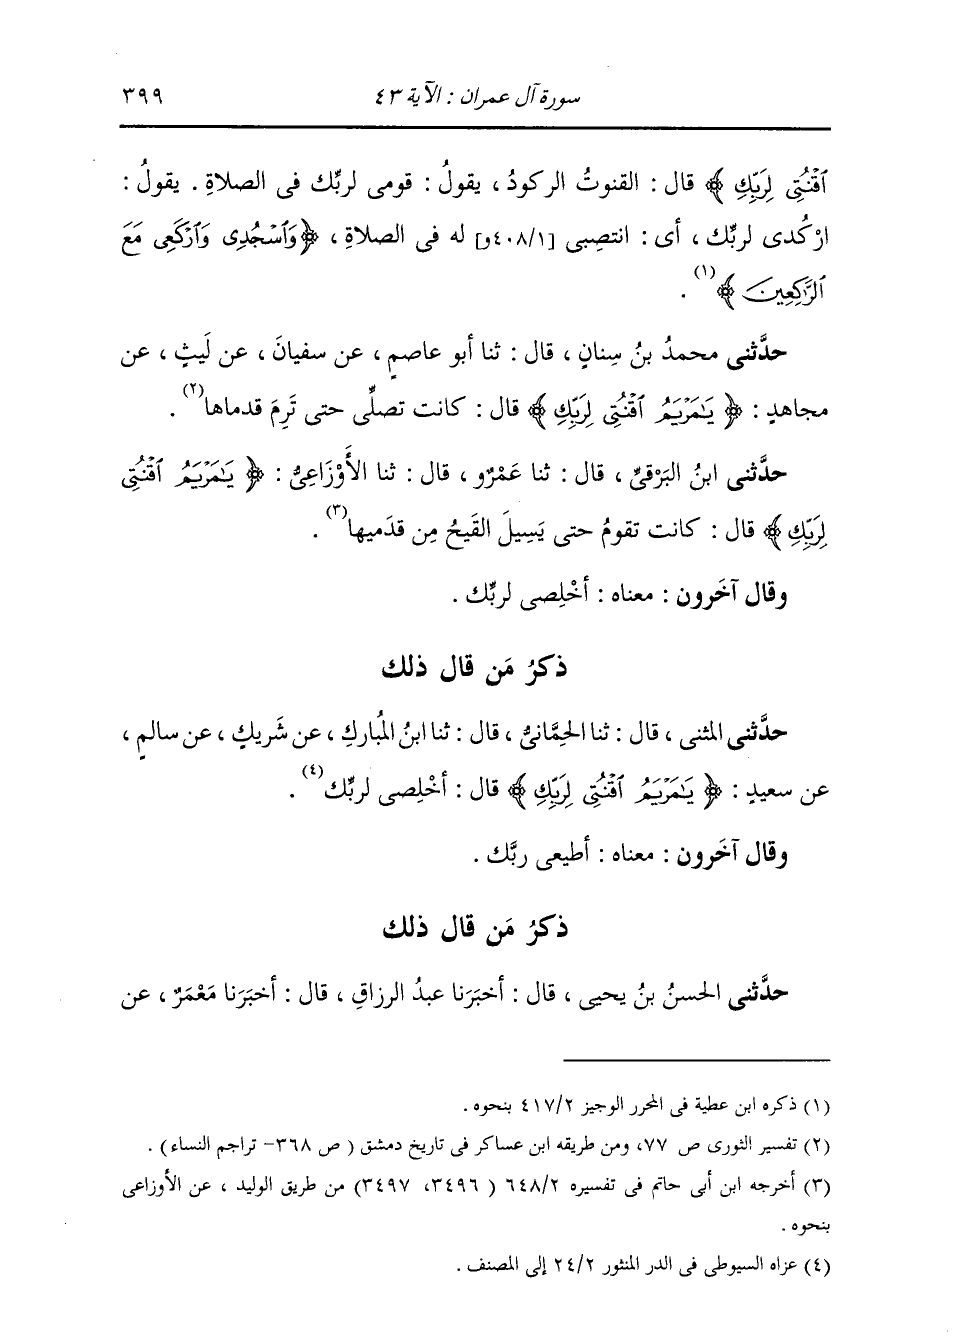 سورة آل عمران : الآية ٤٣ ٣٩٩
ٱقۡنُتِى لِرَبِّكِ ﴾ قال : القنوتُ الركودُ ، يقولُ : قومى لربِّك فى الصلاةِ . يقولُ :
ارْكُدى لربِّك ، أى : انتصِبى [٤٠٨/١و] له فى الصلاةِ ، ﴿ وَٱسۡجُدِى وَٱرۡكَعِى مَعَ
ٱلرَّٰكِعِينَ ﴾ (١) .
حدَّثنى محمدُ بنُ سِنانٍ ، قال : ثنا أبو عاصمٍ ، عن سفيانَ ، عن لَيثٍ ، عن
مجاهدٍ : ﴿ يَٰمَرۡيَمُ ٱقۡنُتِى لِرَبِّكِ ﴾ قال : كانت تصلِّى حتى تَرِمَ قدماها (٢) .
حدَّثنى ابنُ البَرْقىِّ ، قال : ثنا عَمْرٌو ، قال : ثنا الأَوْزَاعِىُّ : ﴿ يَٰمَرۡيَمُ ٱقۡنُتِى
لِرَبِّكِ ﴾ قال : كانت تقومُ حتى يَسِيلَ القَيحُ مِن قدَميها (٣) .
وقال آخَرون : معناه : أخْلِصى لربِّك .
ذكرُ مَن قال ذلك
حدَّثنى المثنى ، قال : ثنا الحِمَّانىُّ ، قال : ثنا ابنُ المُباركِ ، عن شَريكٍ ، عن سالمٍ ،
عن سعيدٍ : ﴿ يَٰمَرۡيَمُ ٱقۡنُتِى لِرَبِّكِ ﴾ قال : أخْلِصى لربِّك (٤) .
وقال آخَرون : معناه : أطيعى ربَّك .
ذكرُ مَن قال ذلك
حدَّثنى الحسنُ بنُ يحيى ، قال : أخبَرَنا عبدُ الرزاقِ ، قال : أخبَرَنا مَعْمَرٌ ، عن
(١) ذكره ابن عطية فى المحرر الوجيز ٤١٧/٢ بنحوه .
(٢) تفسير الثورى ص ٧٧، ومن طريقه ابن عساكر فى تاريخ دمشق ( ص ٣٦٨- تراجم النساء) .
(٣) أخرجه ابن أبى حاتم فى تفسيره ٦٤٨/٢ ( ٣٤٩٦، ٣٤٩٧) من طريق الوليد ، عن الأوزاعى
بنحوه .
(٤) عزاه السيوطى فى الدر المنثور ٢٤/٢ إلى المصنف .